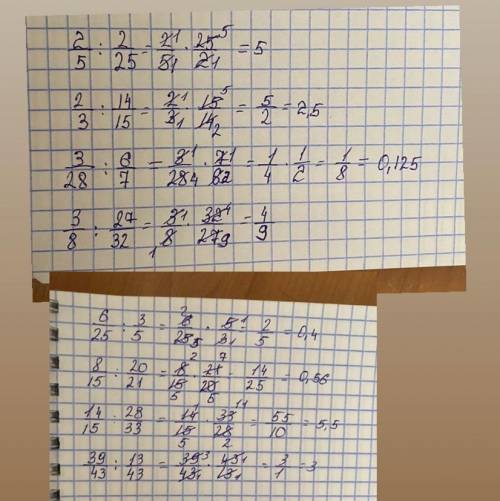 2/5 : 2/25 = 2̶¹/5̶₁ · 2̶5̶⁵/2̶₁ = 5
2/3 : 14/15 = 2̶¹/3̶₁ · 1̶5̶⁵/1̶4̶₂ = 5/2 = 2,5
3/28 : 6/7 = 3̶¹/2̶8̶₄ · 7̶¹/6̶₂ = 1/4 · 1/2 = 1/8 = 0,125
3/8 : 27/32 = 3̶¹/₁8̶ · 3̶2̶⁴/2̶7̶₉ = 4/9
6/25 : 3/5 = ²6̶/2̶5̶₅ · 5̶¹/3̶₁ = 2/5 = 0,4
8/15 : 20/21 = ²8̶/1̶5̶₅ · ⁷2̶1̶/2̶0̶₅ = 14/25 = 0,56
14/15 : 28/33 = ¹1̶4̶/1̶5̶₅ · 3̶3̶¹¹/2̶8̶₂ = 55/10 = 5,5
39/43 : 13/43 = 3̶9̶³/4̶3̶₁ · 4̶3̶¹/1̶3̶₁ = 3/1 = 3